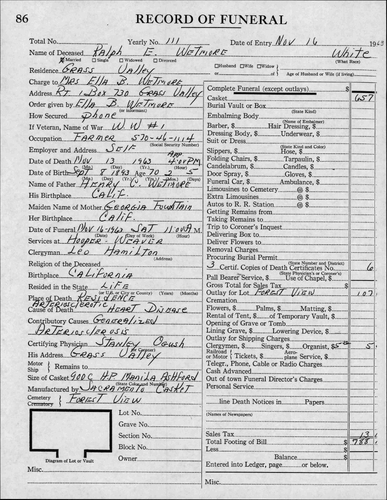 86 RECORD OF FUNERAL
Total No. Yearly No. 111 Date of Entry Nov 16 1963
Name of Deceased Ralph E. Wetmore White
Married Single Widowed Divorced Husband Wife Widow of (What Race)
Residence Grass Valley Age of Husband or Wife (if living)
Charge to Mrs Ella B. Wetmore
Address Rt 1 Box 730 Grass Valley
Order given by Ella B. Wetmore
How Secured phone
If Veteran, of War WW #1
Occupation Farmer 570-46-1114
(Social Security Number)
Employer and Address Self
Date of Death Nov 13 1963 4:00 PM
Date of Birth Sept 8 1893 Age 70 2 5
Name of Father Henry C. Wetmore
His Birthplace Calif.
Maiden Name of Mother Georgia Fountain
Her Birthplace Calif.
Date of Funeral Nov 16-1963 Sat 11:00 AM
Services at Hooper-Weaver
Clergyman Leo Hamilton
(Address)
Religion of the Deceased
Birthplace California
Resided in the State Life
Place of Death Residence
Arteriosclerotic
Cause of Death Heart Disease
Contributory Causes Generalized
Arteriosclerosis
Certifying Physician Stanley
His Address Grass Valley
Motor Ship Remains to
Size of Casket 900 C H-P Manila Ashford
(State Color and Number)
Manufactured by Sacramento Casket
Cemetery
Crematory Forest View
Lot No.
Grave No.
Section No.
Block No.
Owner
Diagram of Lot or Vault
Misc.
Complete Funeral (except outlays) $
Casket 657
Burial Vault or Box
(State Kind)
Embalming Body
(Name of Embalmer)
Barber, $ Hair Dressing, $
Dressing Body, $ Underwear, $
Suit or Dress
(State Kind and Color)
Slippers, $ Hose, $
Folding Chairs, $ Tarpaulin, $
Candelabrum, $ Candles, $
Door Spray, $ Gloves, $
Funeral Car, $ Ambulance, $
Limousines to Cemetery @ $
Extra Limousines @ $
Autos to R. R. Station @ $
Getting Remains from
Taking Remains to
Trip to Coroner's Inquest
Delivering Box to
Deliver Flowers to
Removal Charges
Procuring Burial Permit
(State Number and District)
3 Certif. Copies of Death Certificates No. 6
(State Physician's or Coroner's)
Pall Bearer Service, $ Use of Chapel, $
Gross Total for Sales Tax $
Outlay for Lot Forest View 107
Cremation
Flowers, $ Palms, $ Matting, $
Rental of Tent, $ of Temporary Vault, $
Opening of Grave or Tomb
Lining Grave, $ Lowering Device, $
Outlay for Shipping Charges
Clergymen, $ Singers, $ Organist, $ 5
Railroad or Motor Tickets, $ Aeroplane Service, $
Telegr., Phone, Cable or Radio Charges
Cash Advanced
Out of town Funeral Director's Charges
Personal Service
line Death Notices in Papers
(Names of Newspapers)
Sales Tax 13
Total Footing of Bill $ 788
Less
Balance $
Entered into Ledger, page or below.
Misc.